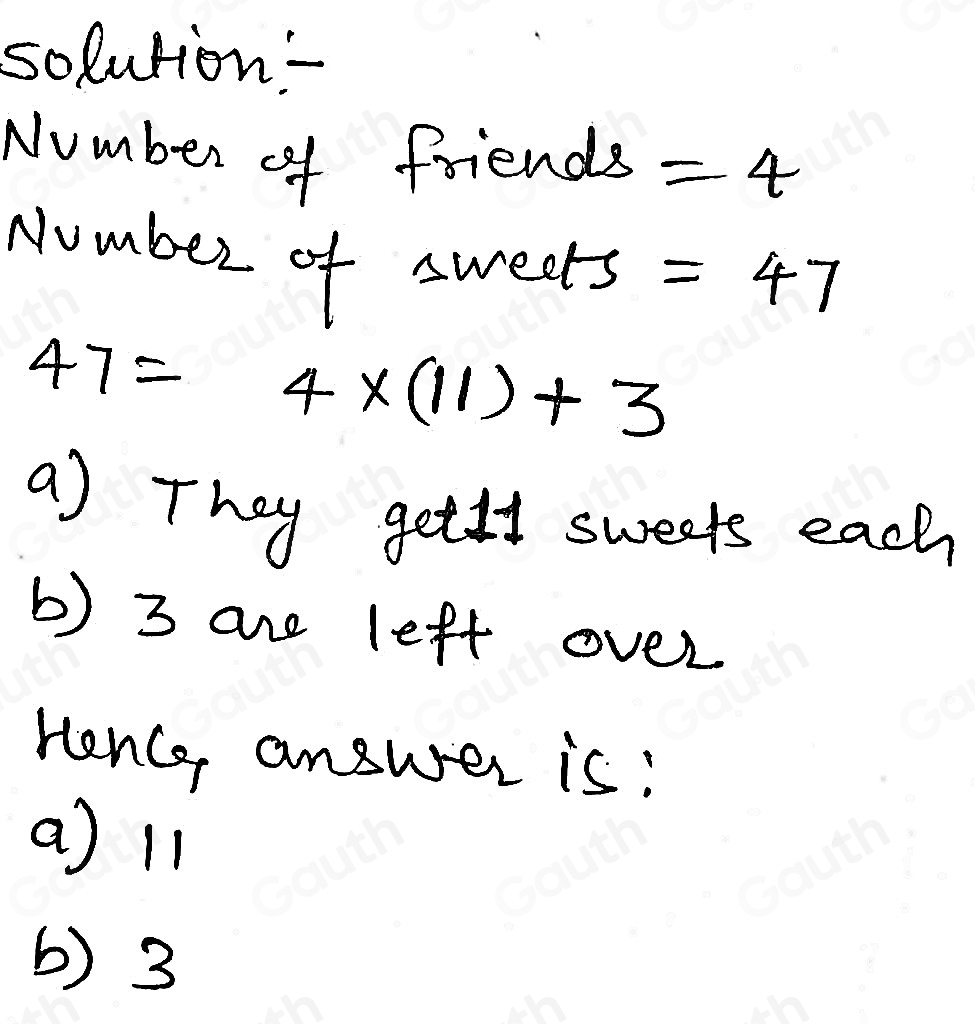 Solution:-
Number of friends = 4
Number of sweets = 47
47 = 4 × (11) + 3
a) They get 11 sweets each
b) 3 are left over
Hence, answer is:
a) 11
b) 3